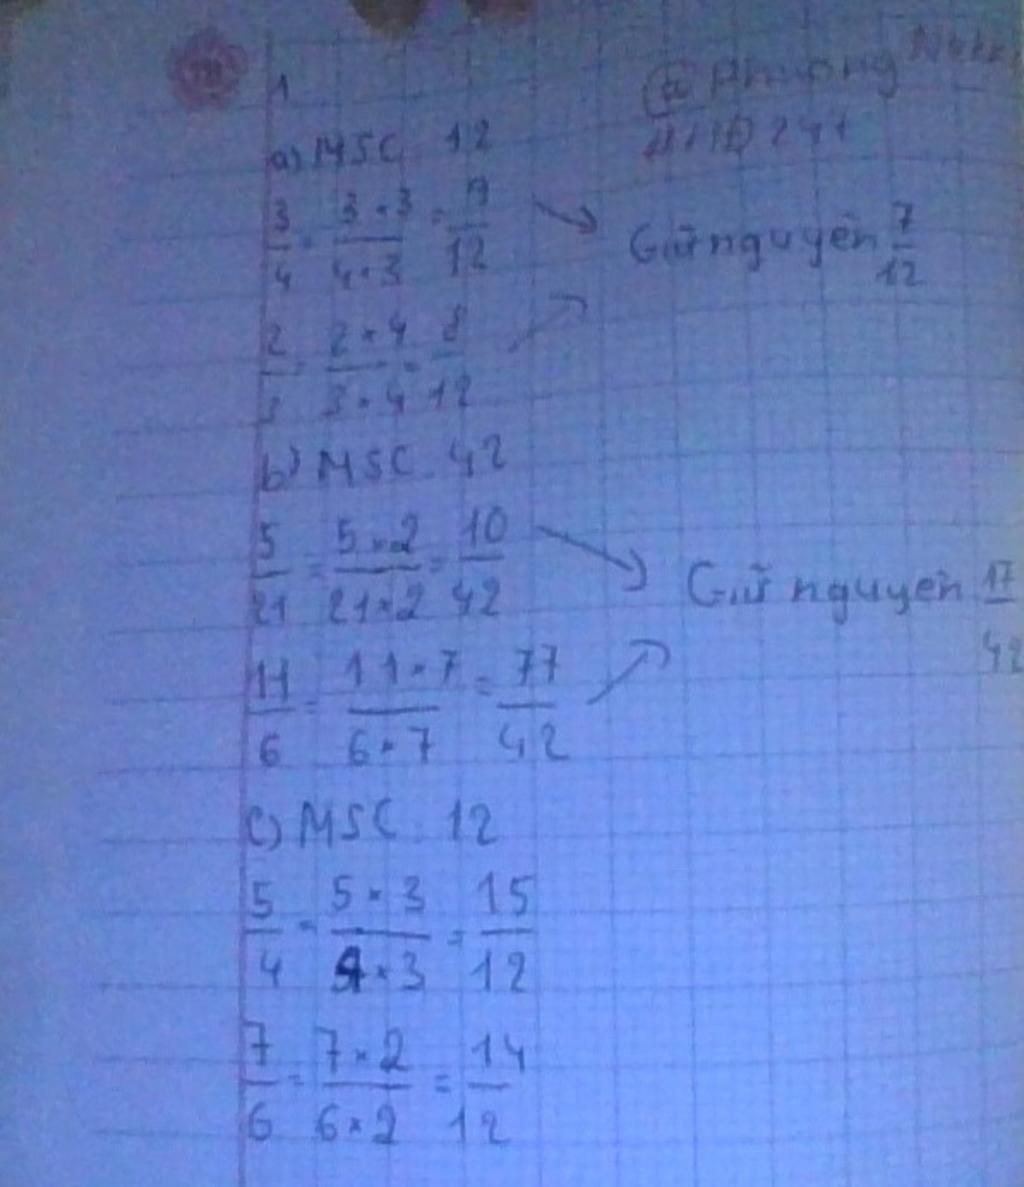 1
@ Phuong
a) MSC 12
3/4 = 3×3/4×3 = 9/12
Giữ nguyên 7/12
2/3 = 2×4/3×4 = 8/12
b) MSC 42
5/21 = 5×2/21×2 = 10/42
Giữ nguyên 17/42
11/6 = 11×7/6×7 = 77/42
c) MSC 12
5/4 = 5×3/4×3 = 15/12
7/6 = 7×2/6×2 = 14/12